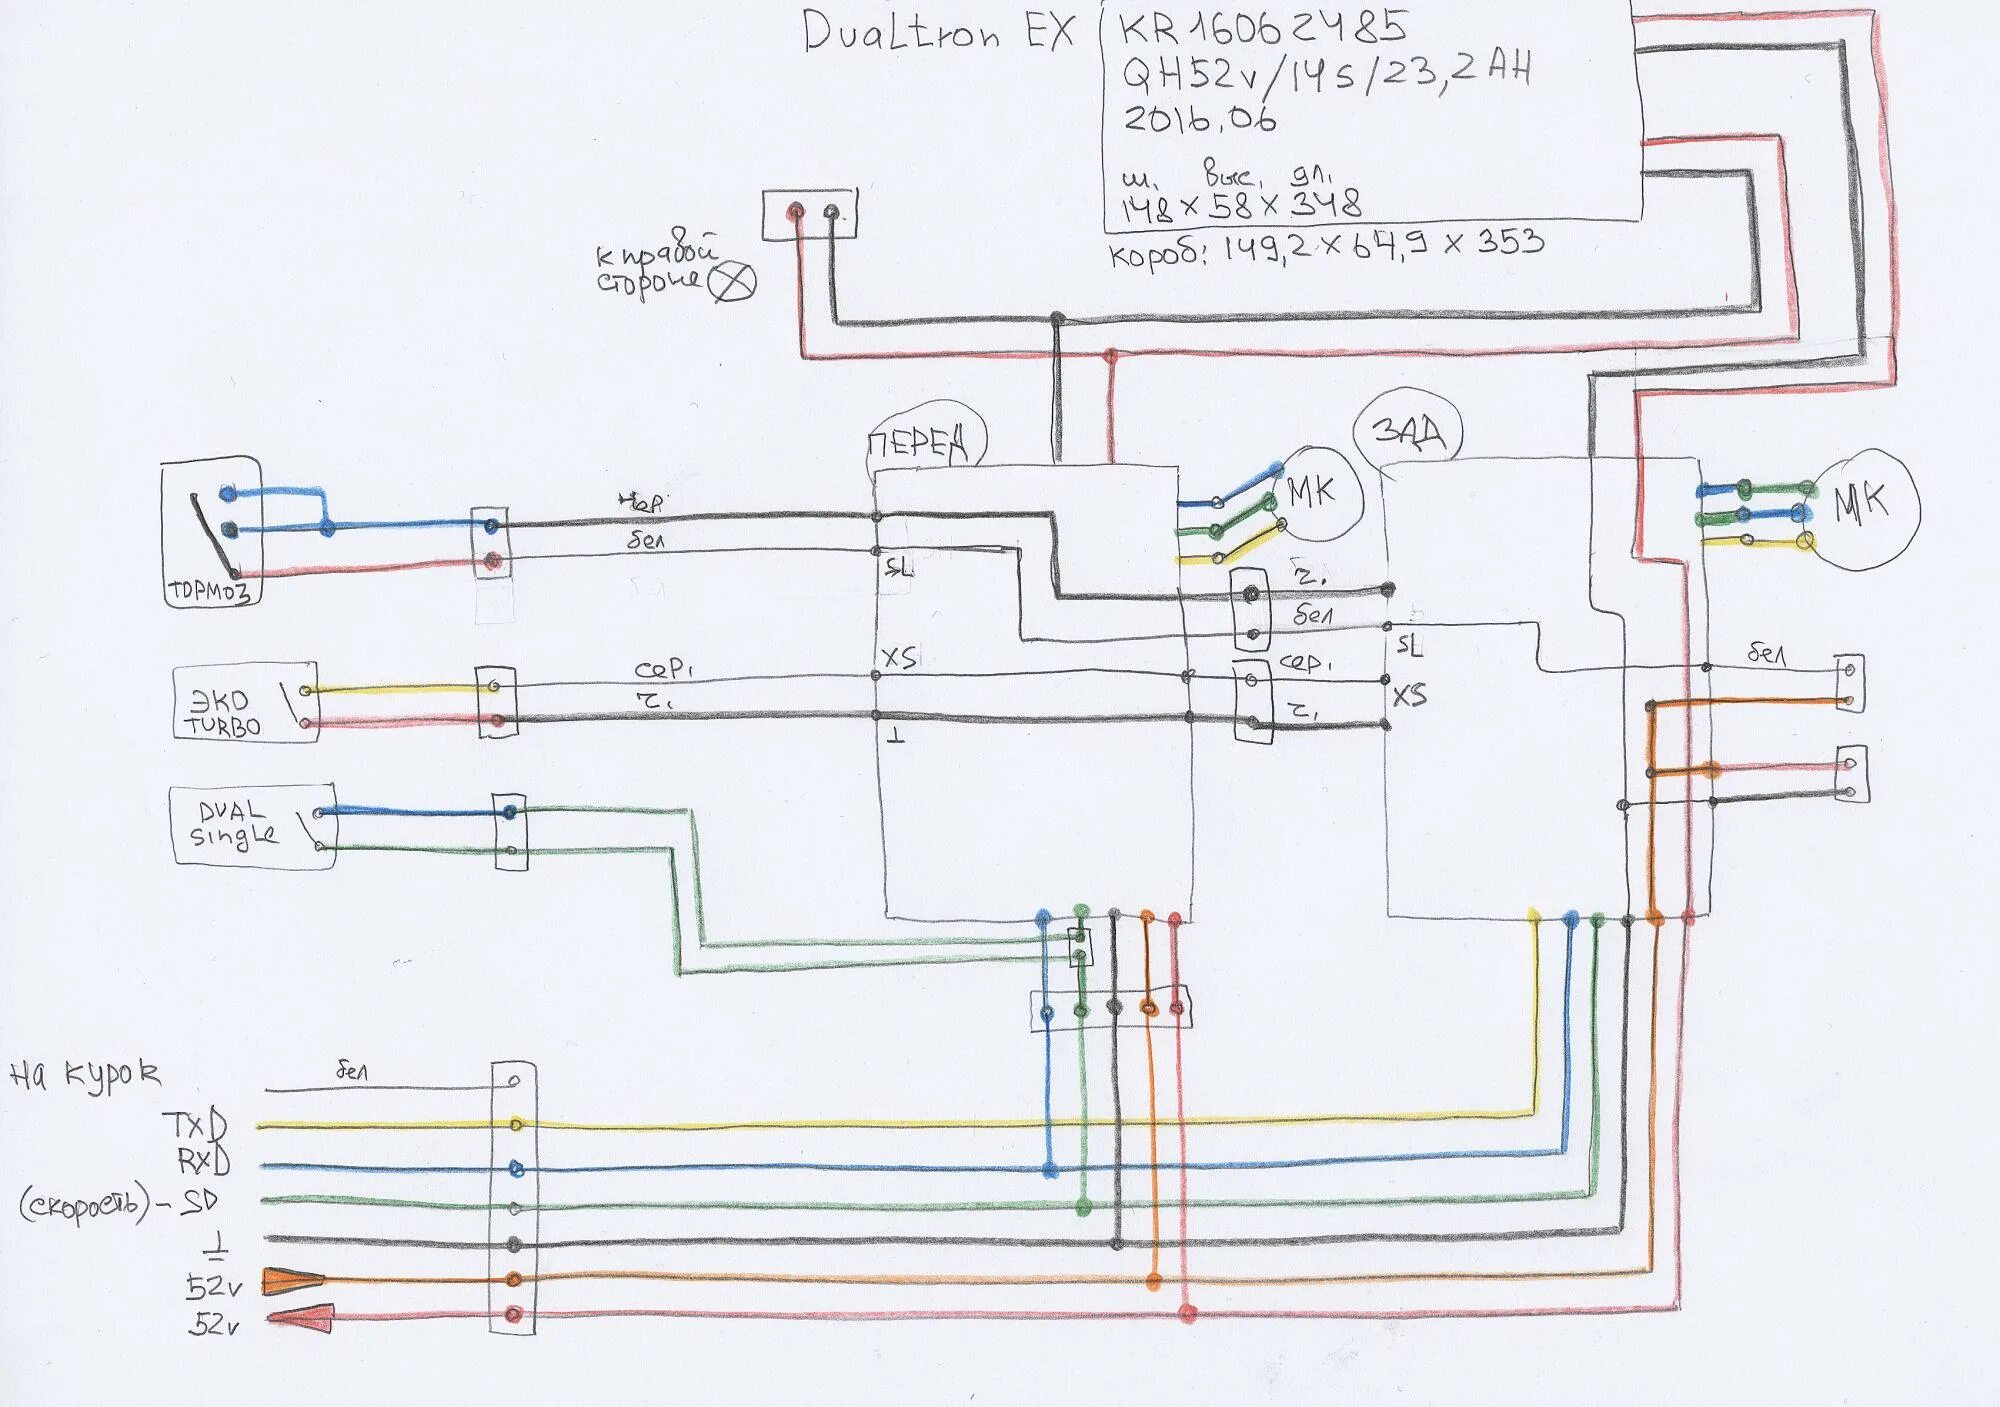 Dualtron EX
KR16062485
QH52v/14s/23,2AH
2016,06
ш. выс. дл.
148 x 58 x 348
короб: 149,2 x 64,9 x 353
к правой
стороне
ПЕРЕД
ЗАД
МК
МК
ТОРМОЗ
чер.
бел
SL
ч.
бел
SL
ЭКО
TURBO
сер.
ч.
XS
⊥
сер.
ч.
XS
бел
DUAL
single
на курок
бел
TXD
RXD
(скорость) - SD
⊥
52v
52v